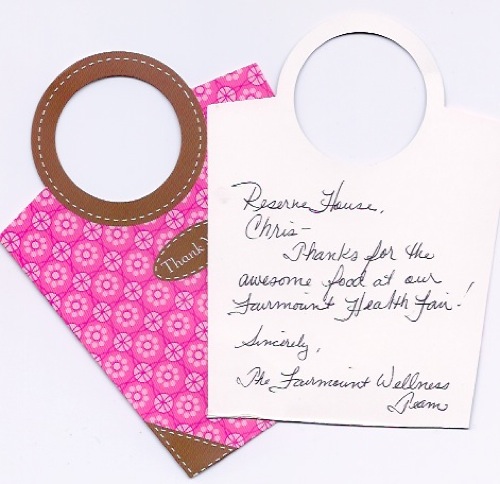 Thank
Reserve House,
Chris-
Thanks for the
awesome food at our
Fairmount Health Fair!
Sincerely,
The Fairmount Wellness
Team